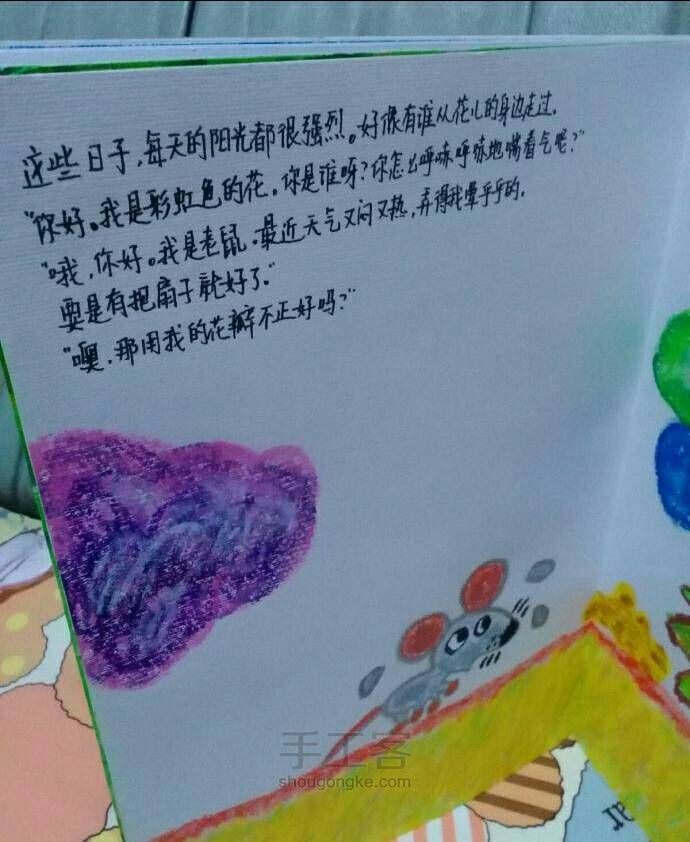 这些日子，每天的阳光都很强烈。好像有谁从花儿的身边走过.
“你好。我是彩虹色的花。你是谁呀？你怎么呼哧呼哧地喘着气呢？”
“哦，你好。我是老鼠.最近天气又闷又热，弄得我晕乎乎的.
要是有把扇子就好了.”
“噢.那用我的花瓣不正好吗？”
手工客
shougongke.com